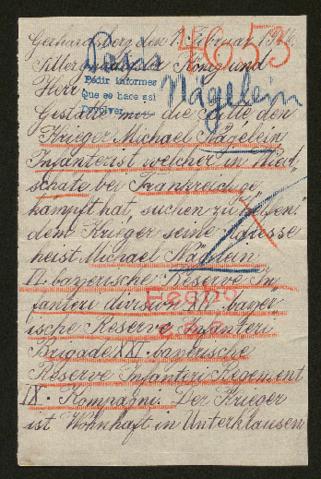 Gerhardsberg den 1. Februar 1916
4653
Allergnädigster König und
Herr
Pedir informes
Que se hace así
Devolver
Nägelein
Gestatte mir die Bitte den
Krieger Michael Nägelein
Infanterist welcher in
schate bei Frankreich ge
kämpft hat, suchen zu helfen!
dem Krieger seine Adresse
heist Michael Näglein
bayerische Reserve In
fanteri division bayer
ische Reserve Infanteri
Brigade bayerische
Reserve Infanteri Regement
IX. Kompagni. Der Krieger
ist Wohnhaft in Unterklausen
Hecho